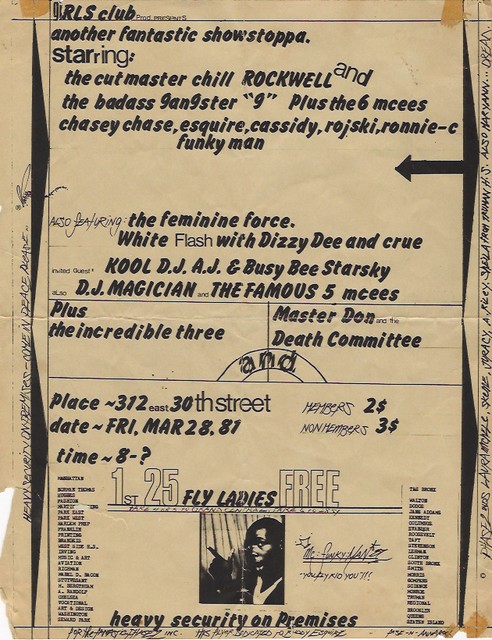 GiRLS club Prod. PRESENTS
another fantastic showstoppa.
starring:
the cut master chill ROCKWELL and
the badass 9an9ster "9" Plus the 6 mcees
chasey chase, esquire, cassidy, rojski, ronnie-c
funky man
ALSO FEATURING: the feminine force.
White Flash with Dizzy Dee and crue
invited Guest' KOOL D.J. A.J. & Busy Bee Starsky
also D.J. MAGICIAN and THE FAMOUS 5 mcees
Plus
the incredible three
Master Don and the
Death Committee
and
Place ~312 east 30th street
date ~ FRI, MAR 28, 81
time ~ 8-?
MEMBERS 2$
NON MEMBERS 3$
1ST 25 FLY LADIES FREE
MANHATTAN
NORMAN THOMAS
HUGHES
FASHION
PARK EAST
PARK WEST
HARLEM PREP
FRANKLIN
PRINTING
BRANDEIS
WEST SIDE H.S.
IRVING
MUSIC & ART
AVIATION
RICHMAN
MABEL D. BACON
STUYVESANT
M. BERGTRAUM
A. RANDOLF
CHELSEA
VOCATIONAL
ART & DESIGN
WASHINGTON
SEWARD PARK
THE BRONX
WALTON
DODGE
JANE ADDAMS
KENNEDY
COLUMBUS
EVANDER
ROOSEVELT
TAFT
STEVENSON
LEHMAN
CLINTON
SOUTH BRONX
SMITH
MORRIS
GOMPERS
SCIENCE
MONROE
TRUMAN
REGIONAL
BROOKLYN
QUEENS
STATEN ISLAND
heavy security on Premises
HEAVY SECURITY ON PREMISES - COME IN PEACE